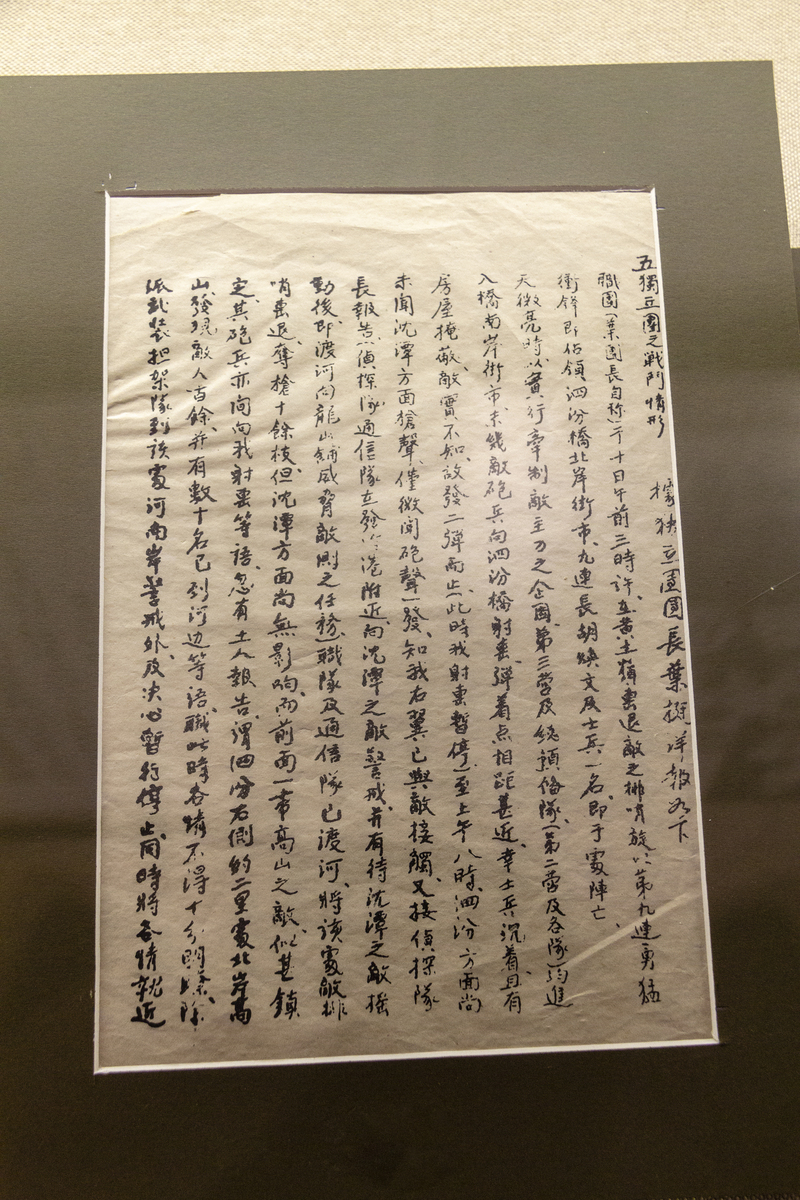 五獨立團之戰鬥情形
據獨立團團長葉挺洋報如下
職團(葉團長自称)于十日午前三時許、在黄土嶺擊退敵之排哨旋以第九連勇猛
衝鋒即佔領泗汾橋北岸街市、九連長胡焕文及士兵一名、即于該處陣亡、
天微亮時以實行牽制敵主力之企圖、第三营及統預備隊(第二营及各隊)均進
入橋南岸街市、未幾敵砲兵向泗汾橋射擊、弹着点相距甚近、幸士兵沉着且有
房屋掩蔽、敵實不知、故發二弹而止(此時我射擊暫停)至上午八時、泗汾方面尚
未聞沈潭方面槍聲、僅微聞砲聲一發、知我右翼已與敵接觸、又接偵探隊
長報告、(偵探隊通信隊在發 港附近向沈潭之敵警戒、并有待沈潭之敵摇
動後、即渡河向龍山鋪威脅敵側之任務)職隊及通信隊已渡河、將該處敵排
哨擊退、奪槍十餘枝、但沈潭方面尚無影响、而前面一带高山之敵、似甚鎮
定、其砲兵亦间向我射擊等語、忽有土人報告、謂泗汾右側約二里處北岸高
山、發現敵人百餘、并有數十名已到河边等語、職此時各情不得十分明瞭、除
派武装担架隊到該處河南岸警戒外、及决心暫行停止、同時將各情就近